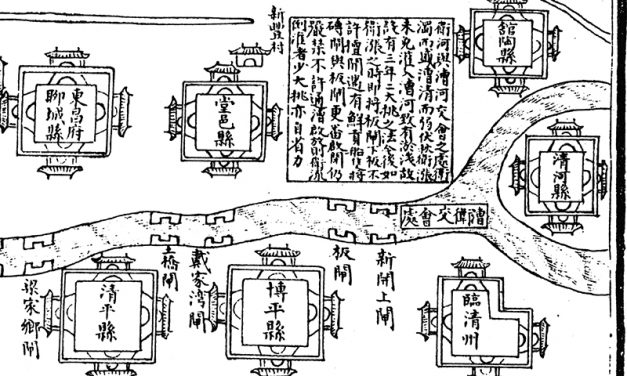 館陶縣
新豊村
衛河與漕河交會之處衛
濁而盛漕清而弱伏秋衛漲
未免淮入漕河致有淤淺故
議有三年二大挑之法今後如
衛漲之時即將板閘下板不
許擅開遇有鮮貢船隻將
磚閘與板閘更番啟閉仍
嚴禁不許過漕啟放則衛流
倒淮者少大挑亦自省力
堂邑縣
東昌府
聊城縣
清河縣
漕衛交會處
新開上閘
板閘
戴家灣閘
土橋閘
梁家鄉閘
臨清州
博平縣
清平縣